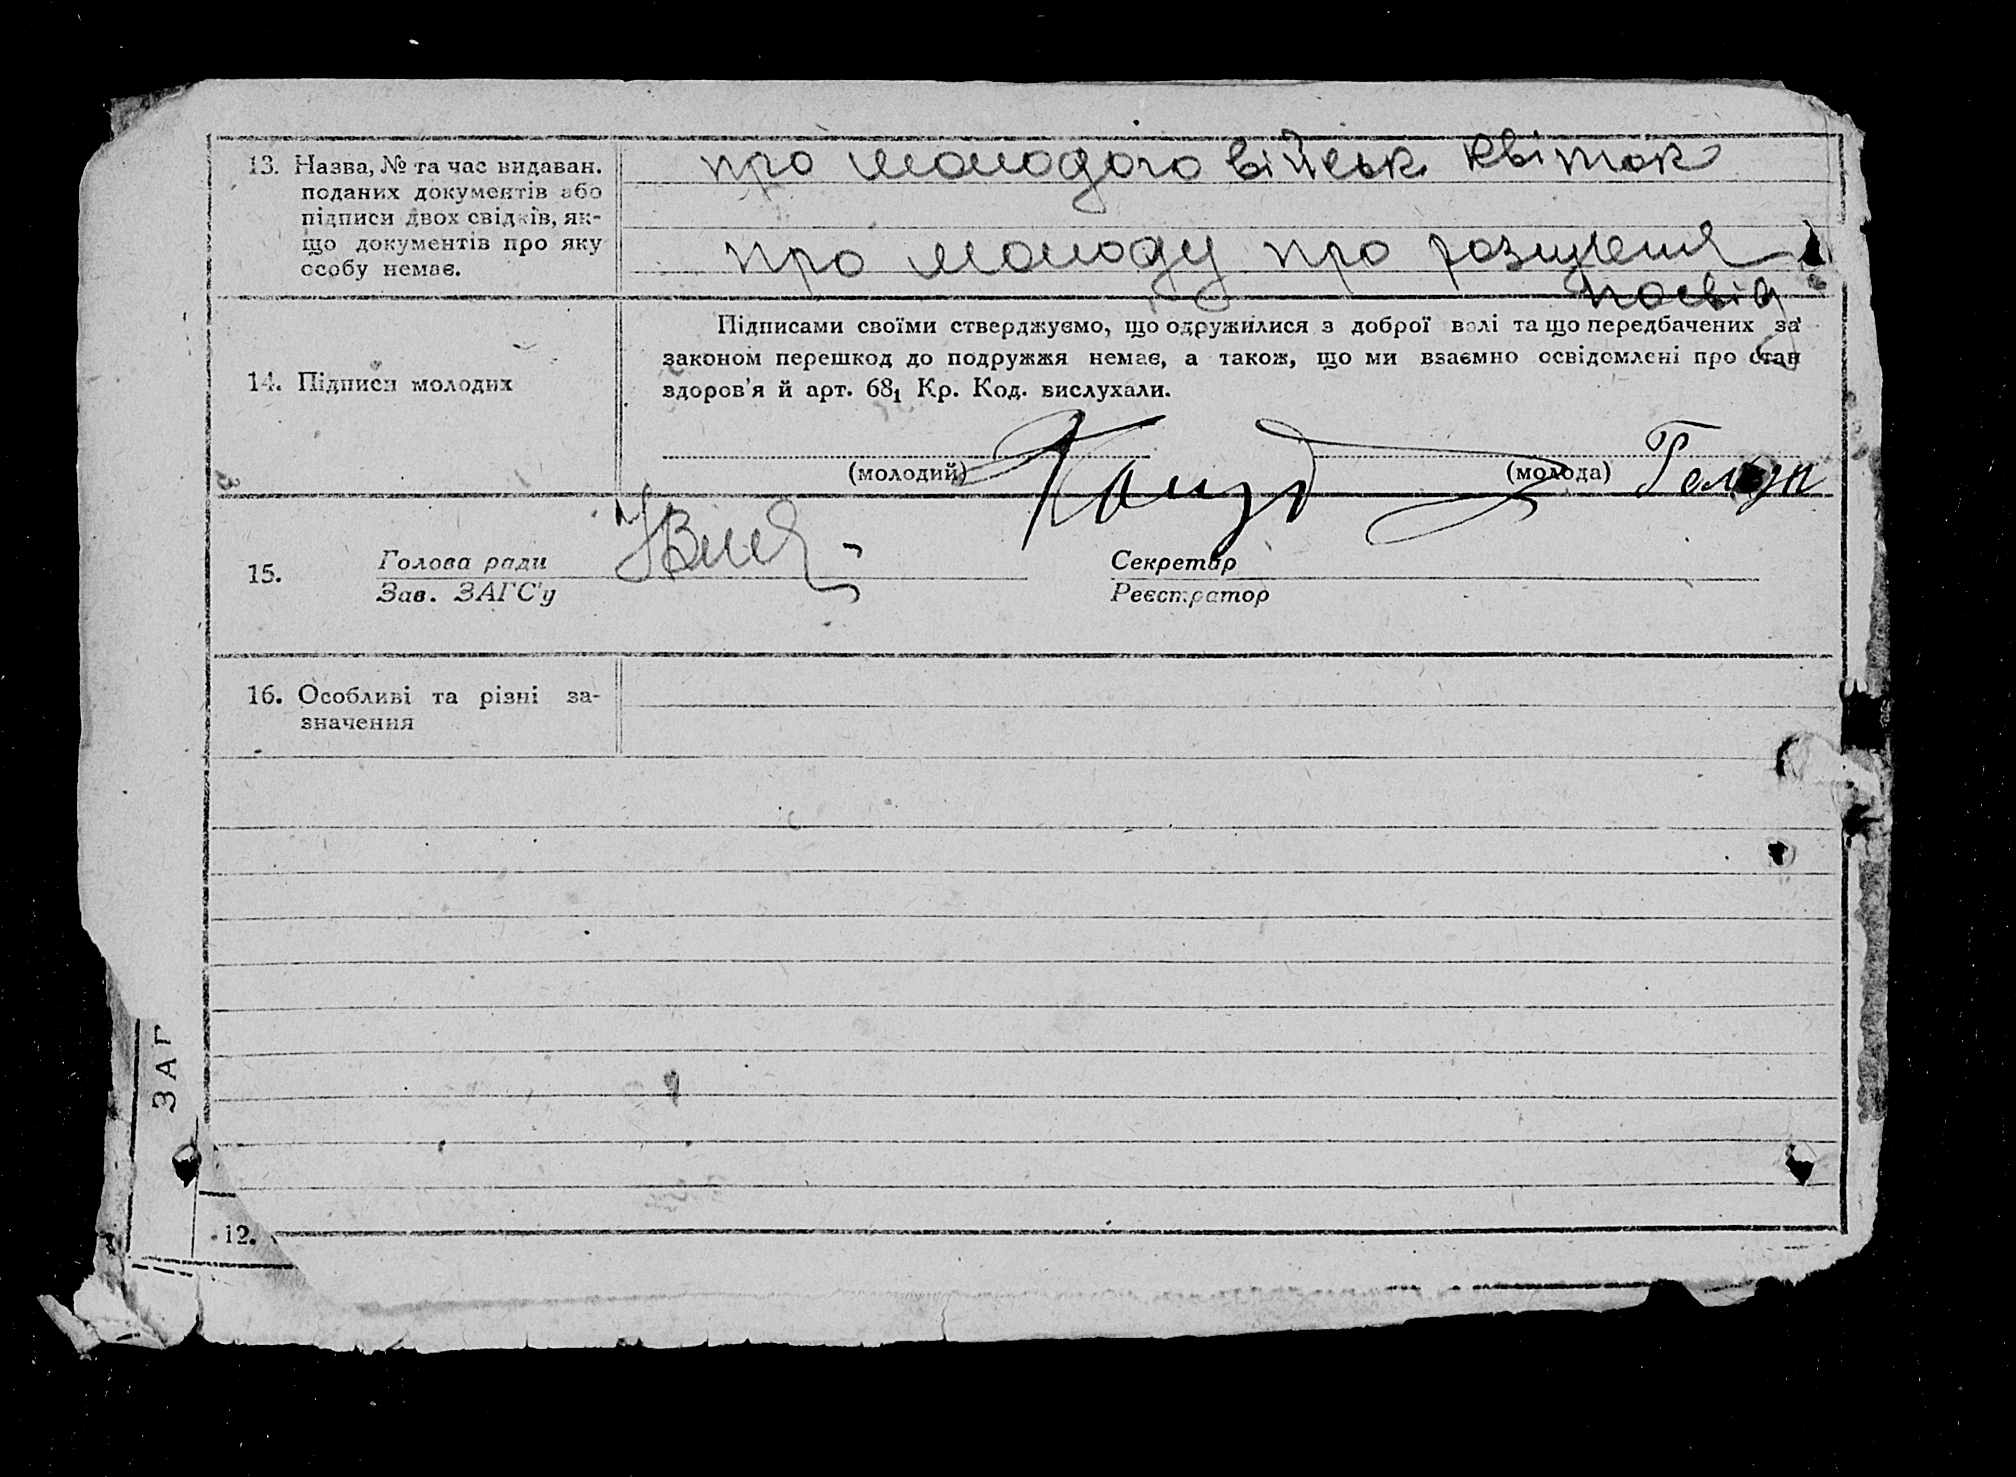 13. Назва, № та час видаван.
поданих документів або
підписи двох свідків, як-
що документів про яку
особу немає.
про молодого військ квіток
про молоду про розлученя
посвід
14. Підписи молодих
Підписами своїми стверджуємо, що одружилися з доброї волі та що передбачених за
законом перешкод до подружжя немає, а також, що ми взаємно освідомлені про стан
здоров'я й арт. 68₁ Кр. Код. вислухали.
(молодий)
(молода)
15.
Голова ради
Зав. ЗАГС'у
Секретар
Реєстратор
16. Особливі та різні за-
значення
ЗАГ
12.